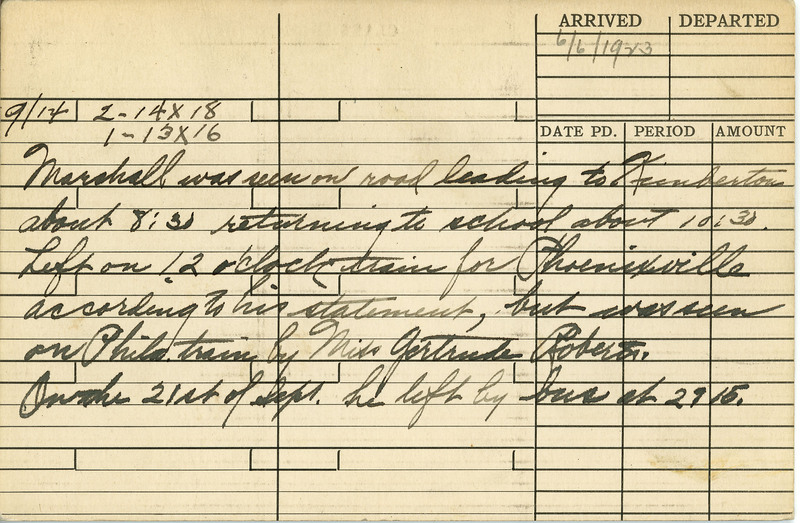 ARRIVED DEPARTED
6/6/1923
9/14 2-14X18
1-13X16
DATE PD. PERIOD AMOUNT
Marshall was seen on road leading to Kimberton
about 8:30 returning to school about 10:30.
Left on 12 o'clock train for Phoenixville
according to his statement, but was seen
on Phila. train by Miss Gertrude Roberts.
On the 21st of Sept. he left by bus at 2915.